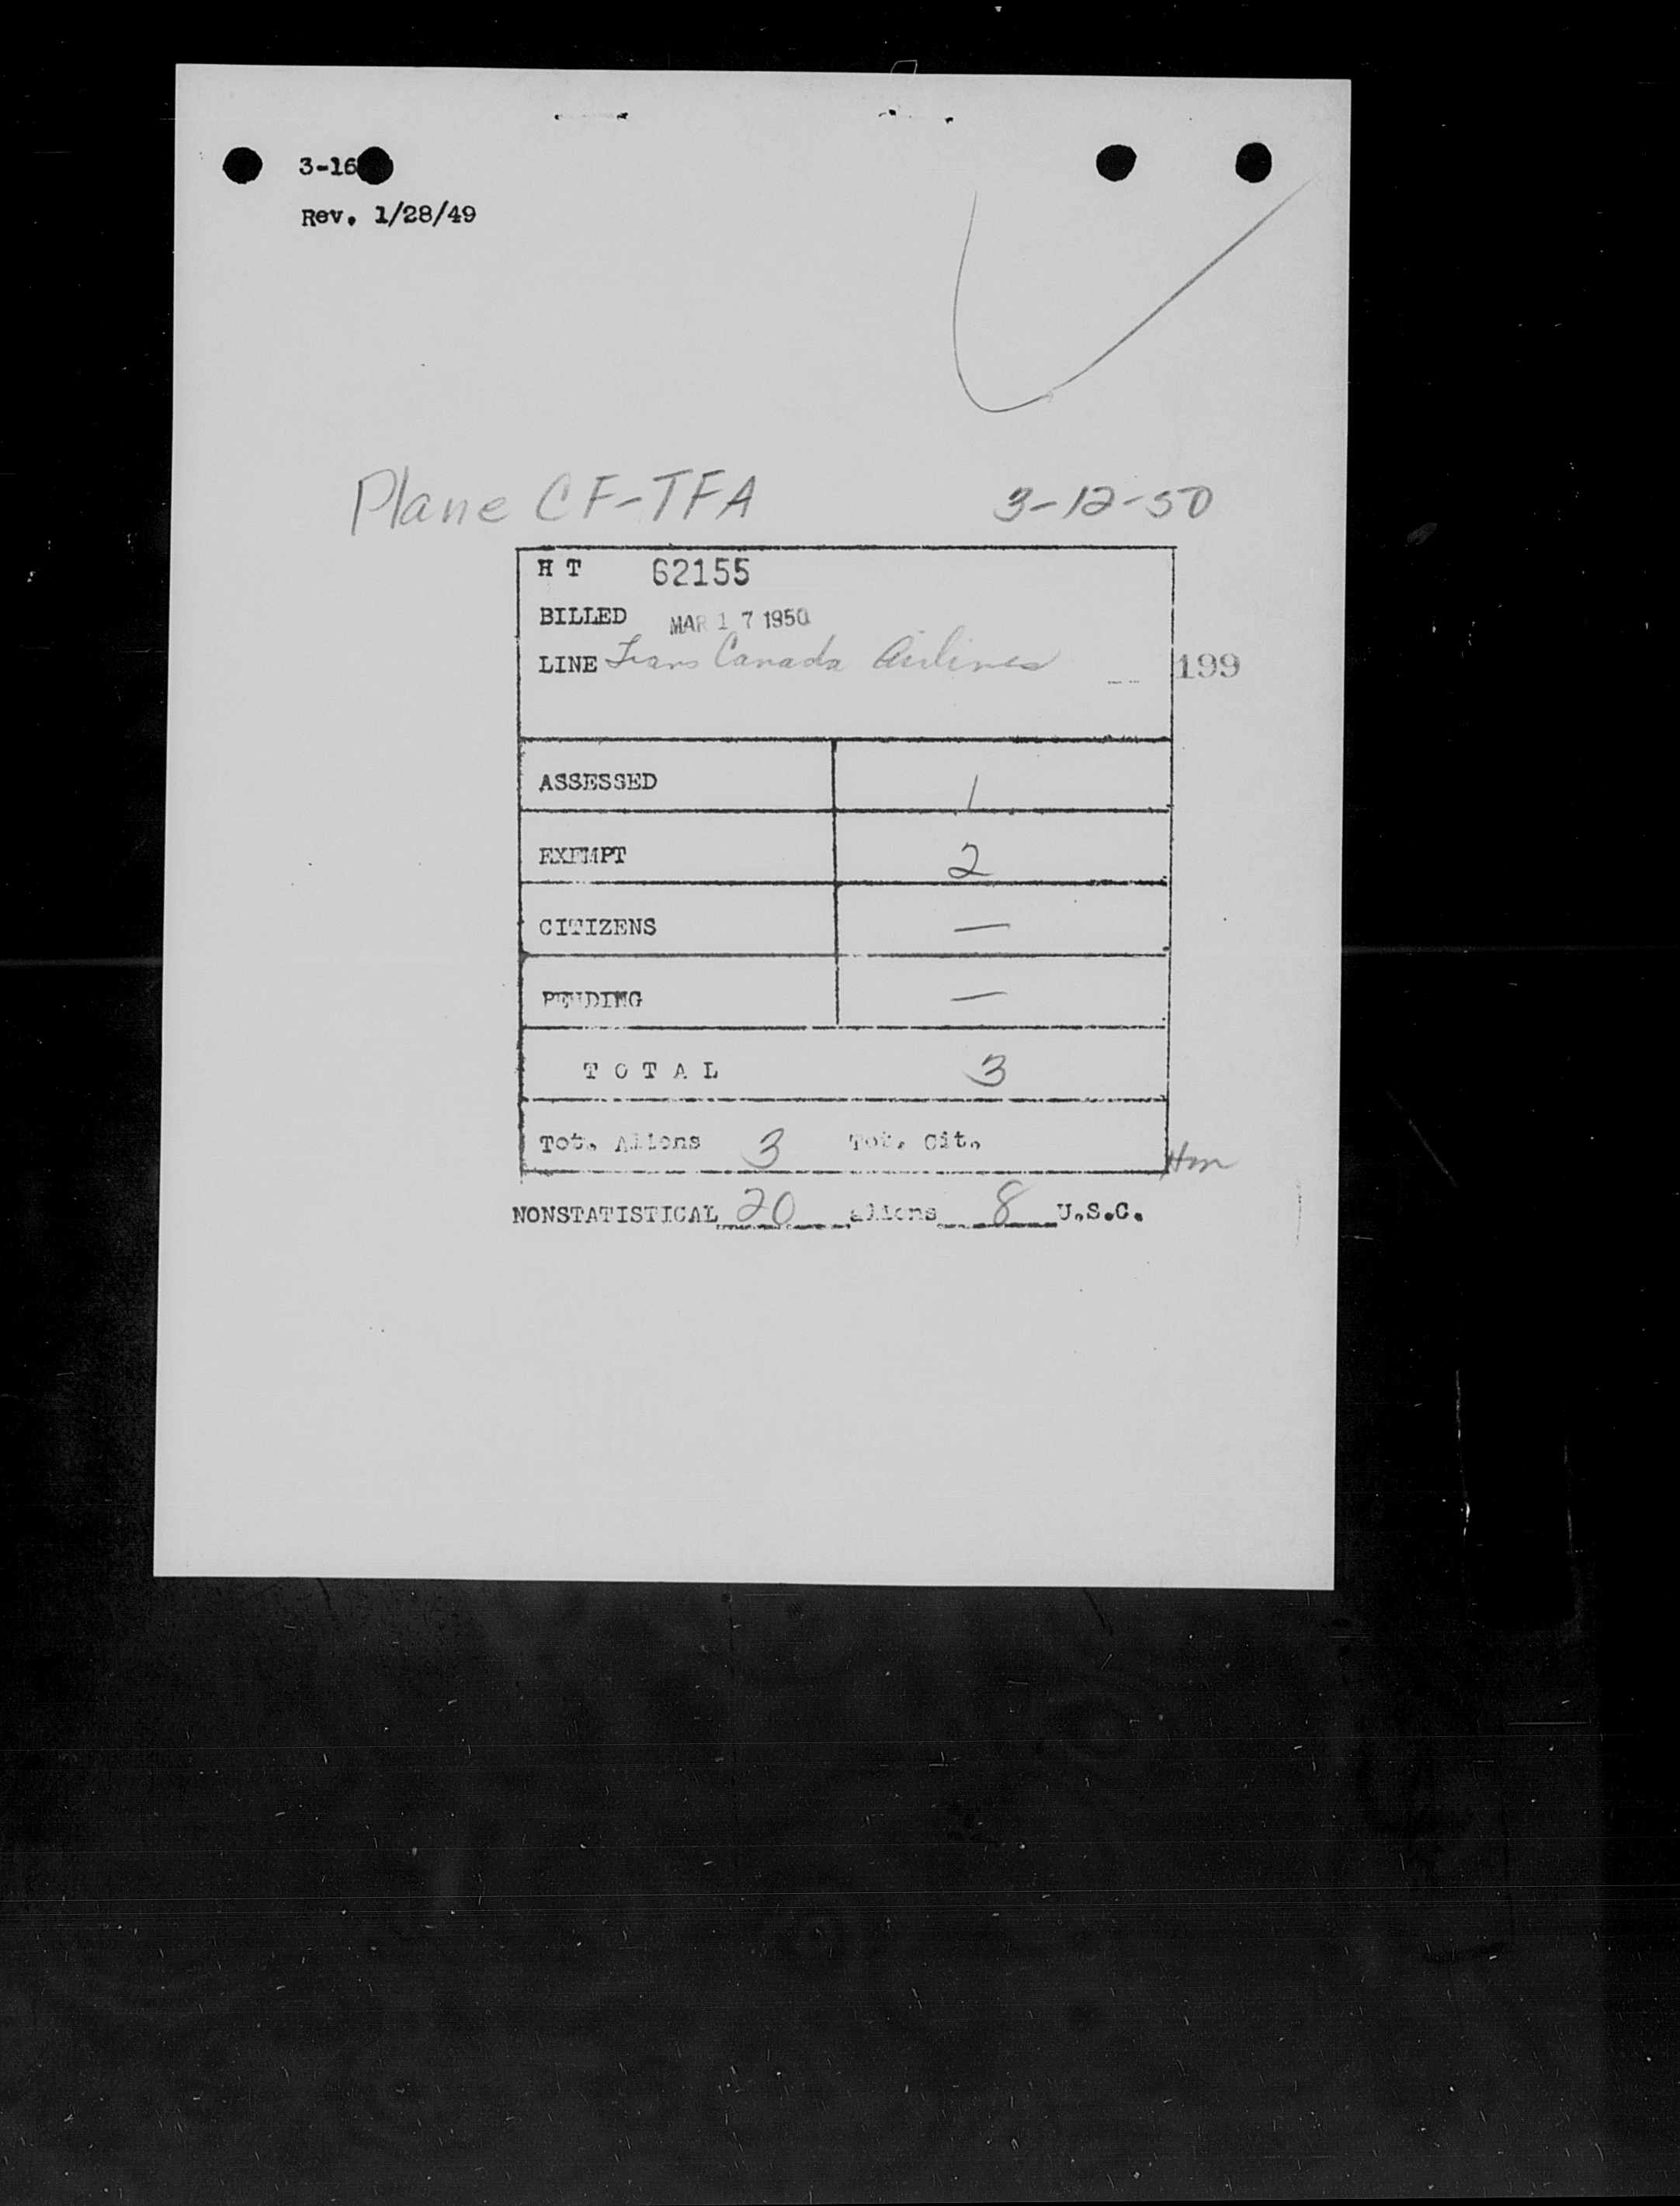 3-16
Rev. 1/28/49
Plane CF-TFA 3-12-50
H T 62155
BILLED MAR 17 1950
LINE Trans Canada Airlines 199
ASSESSED 1
EXEMPT 2
CITIZENS —
PENDING —
T O T A L 3
Tot. Aliens 3 Tot. Cit.
Hm
NONSTATISTICAL 20 aliens 8 U.S.C.